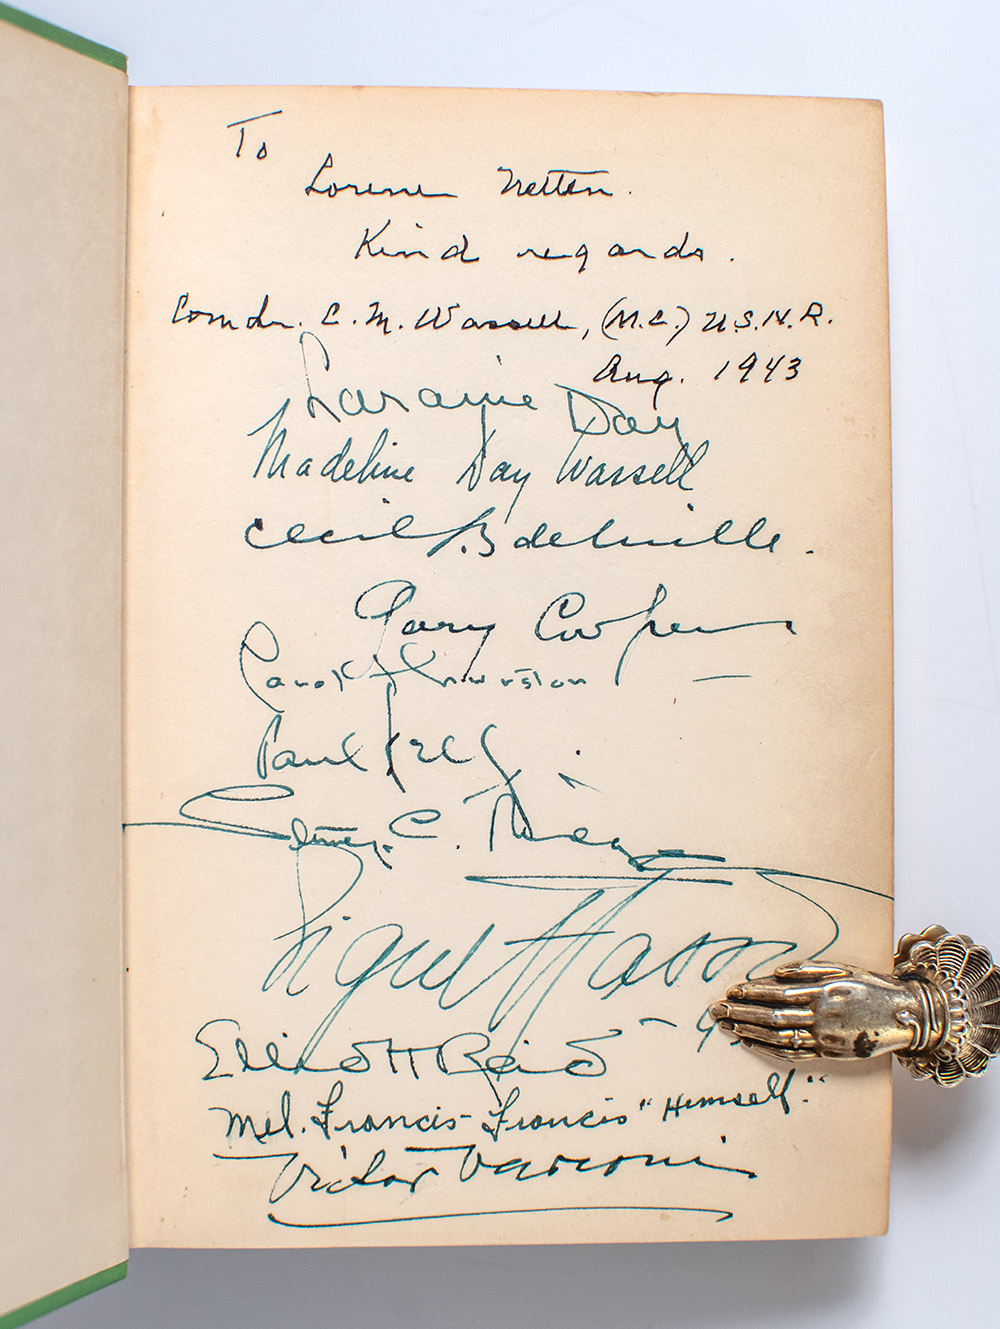 To
Lorene Netten.
Kind regards.
Comdr. C. M. Wassell, (M.C.) U.S.N.R.
Aug. 1943
Laraine Day
Madeline Day Wassell
Cecil B deMille.
Gary Cooper
Carol Thurston
Paul Kelly
C.
Signe Hasso
Elliott Reid
Mel. Francis-Francis "Himself."
Victor Varconi